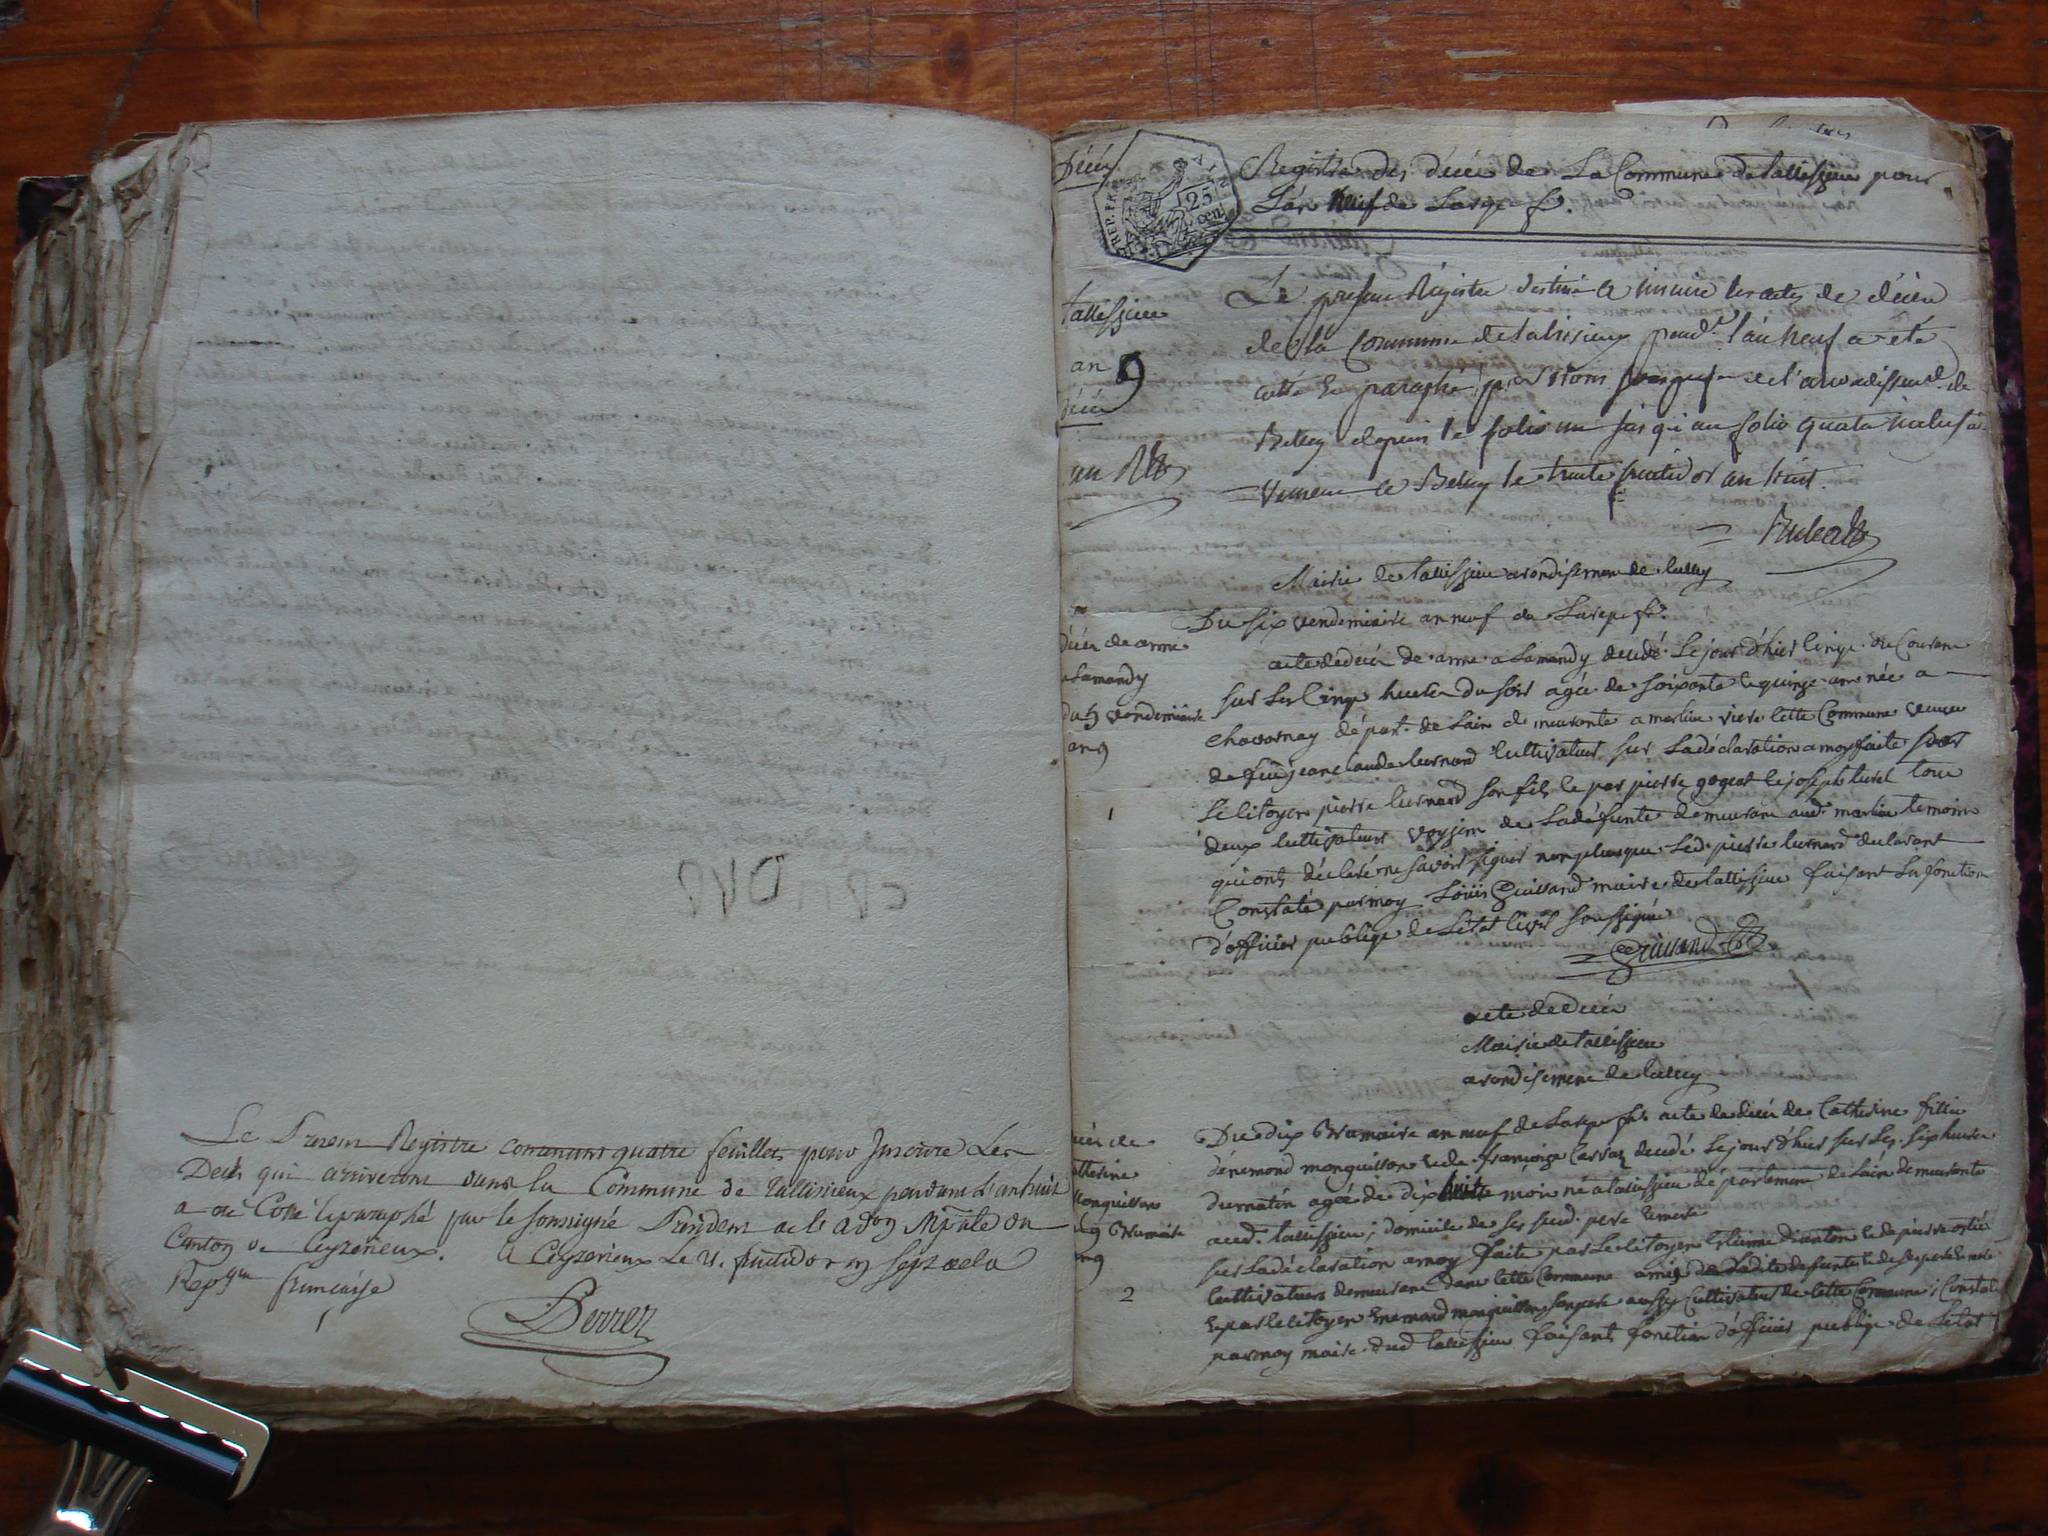 Le Present Registre contenant quatre feuillets pour Inscrire Les
Decès qui arriveront dans la Commune de Tallissieux pendant L'an huit
a été Cotté & paraphé par le soussigné Président de l' adon Mpale du
Canton de Ceyzerieux. A Ceyzerieux Le 21. fructidor an sept de la
Repque francaise
Perrier
Décès
REP. FRA
AIN
25 cent
Registre des décès de La Commune de tallissieu pour
L'an Neuf de La rep. f.
tallissieu
an 9
décès
un R
Le présent Régistre destiné a inscrire les actes de décès
de la Commune de talissieux pend.t l'an neuf a été
cotté et paraphé par nous sous prefet de l'arrondissemt. de
Belley depuis le folio un jusqu'au folio quatre inclusi
vement a Belley le trente fructidor an huit.
Rubat
Mairie de tallissieu arondisement de belley
Du six vendemiaire an neuf de La rep. fr.
décès de anne
a Lamandy
du 5 vendemiaire
an 9
1
acte de décès de anne a Lamandy decedé Le jour d'hier cinq du Courant
sur Les Cinq heures du soir agée de soixante & quinze an née a
chavornay départ. de Lain demeurante a marlieu riere cette Commune veuve
de feu jean claude bernard Cultivateur, sur La déclaration a moy faite par
Le Citoyen pierre bernard son fils & par pierre gogeat & joseph turel tous
deux Cultivateurs voysin de La défunte demeurant aud. marlieu temoins
qui ont déclaré ne savoir signer non plus que Led. pierre bernard declarant
Constaté par moy Loüis Guissand maire de tallissieu faisant La fonction
d'officier publique de L'état Civil soussigné
Guissand
acte de décès
Mairie de tallissieu
arondisement de belley
décès de
catherine
monguillon
du 9 Brumaire
an 9
2
Du dix Brumaire an neuf de La rep. fr. acte de décès de Catherine fillie
d'enemond monguillon & de françoise decedé Le jour d'hier sur Les six heures
du matin agée de dix huit mois né a tallissieu département de Lain demeurante
aud. tallissieu, domicile de ses sud. pere & mere
sur La déclaration a moy faite par Le Citoyen Etienne & de pierre
Cultivateurs demeurant dans Cette Commune amis de La dite defunte & de ses pere & mere
& par le Citoyen Enemond monguillon son pere aussy Cultivateur de Cette Commune, Constaté
par moy maire dud tallissieu faisant fonction d'officier publique de L'état